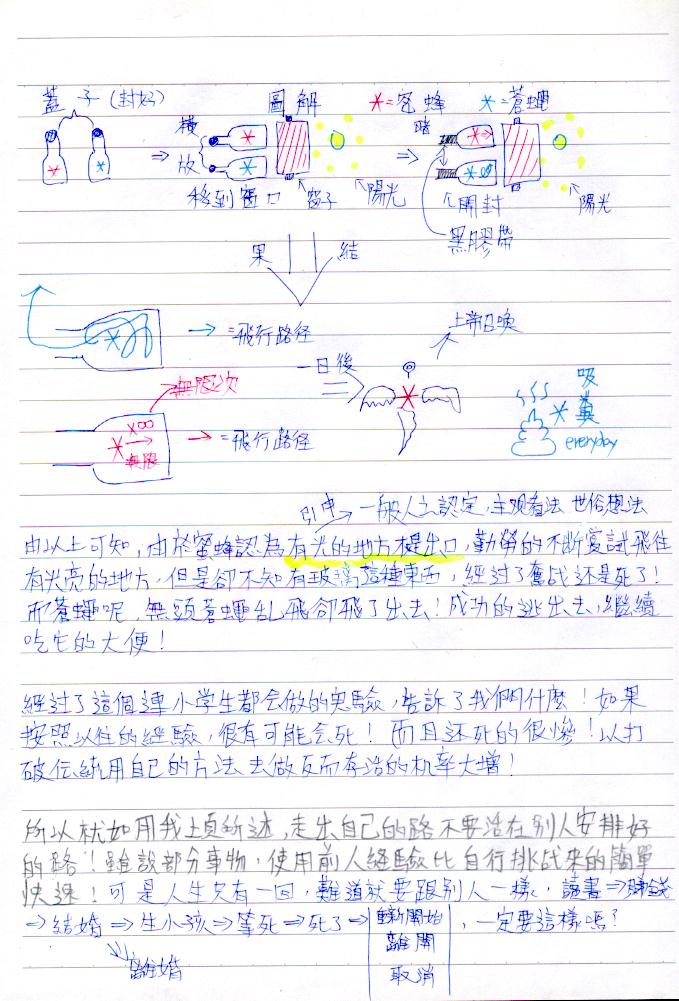 蓋子(封好)
圖解
*=蜜蜂
*=蒼蠅
橫放
⇒
移到窗口
窗子
陽光
⇒
暗
開封
黑膠帶
陽光
結果
→=飛行路径
無限次
→=飛行路径
∞×
無限
一日後
上帝召喚
吸糞
everyday
引申→一般人之認定,主观看法 世俗想法
由以上可知,由於蜜蜂認為有光的地方才是出口,勤勞的不断嘗試飛往
有光亮的地方,但是卻不知有玻璃這種東西,經过了奮战还是死了!
而蒼蠅呢,無頭蒼蠅乱飛卻飛了出去!成功的逃出去,繼續
吃它的大便!
經过了這個連小学生都会做的实驗,告訴了我們什麼!如果
按照以往的經驗,很有可能会死!而且还死的很慘!以打
破伝統用自己的方法去做反而存活的机率大增!
所以就如同我上頁所述,走出自己的路不要活在別人安排好
的路!雖說部分事物,使用前人經驗比自行挑战來的簡單
快速!可是人生只有一回,難道就要跟別人一樣,讀書⇒賺錢
⇒結婚⇒生小孩⇒等死⇒死了⇒重新開始,一定要這樣嗎?
離開
取消
離婚